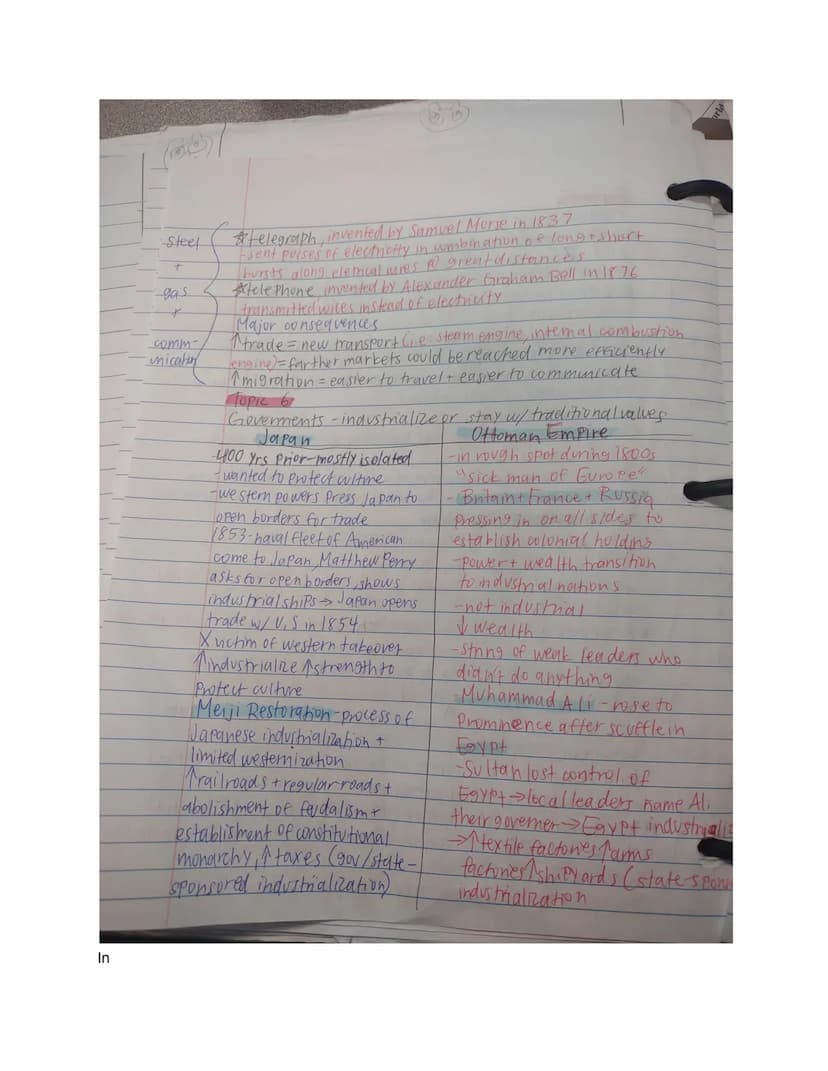 steel
+
gas
+
comm-
unication
*telegraph, invented by Samuel Morse in 1837
-sent pulses of electricity in combination of long + short
bursts along eletrical wires @ great distances
*telephone, invented by Alexander Graham Bell in 1876
transmitted wices instead of electricity
Major consequences
↑trade = new transport (i.e. steam engine, internal combustion
engine) = farther markets could be reached more efficiently
↑migration = easier to travel + easier to communicate
Topic 6
Goverments - industrialize or stay w/ traditional values
Japan
-400 yrs prior-mostly isolated
-wanted to protect culture
-western powers press Japan to
open borders for trade
1853-naval fleet of American
come to Japan, Matthew Perry
asks for open borders, shows
industrial ships → Japan opens
trade w/ U.S in 1854
X victim of western takeover
↑industrialize ↑strength to
protect culture
Meiji Restoration-process of
Japanese industrialization +
limited westernization
↑railroads + regular roads +
abolishment of feudalism +
establisment of constitutional
monarchy, ↑taxes (gov/state-
sponsored industrialization)
Ottoman Empire
-in rough spot during 1800s
"sick man of Europe"
- Britain + France + Russia
pressing in on all sides to
establish colonial holdins
-power + wealth transition
to industrial nations
-not industrial
↓ wealth
-string of weak leaders who
didn't do anything
Muhammad Ali - rose to
prominence after scuffle in
Egypt
-Sultan lost control of
Egypt → local leaders name Al.
their governer → Egypt industriali
→ ↑textile factories ↑arms
factories ↑shipyards (state-spon
industrialization
In